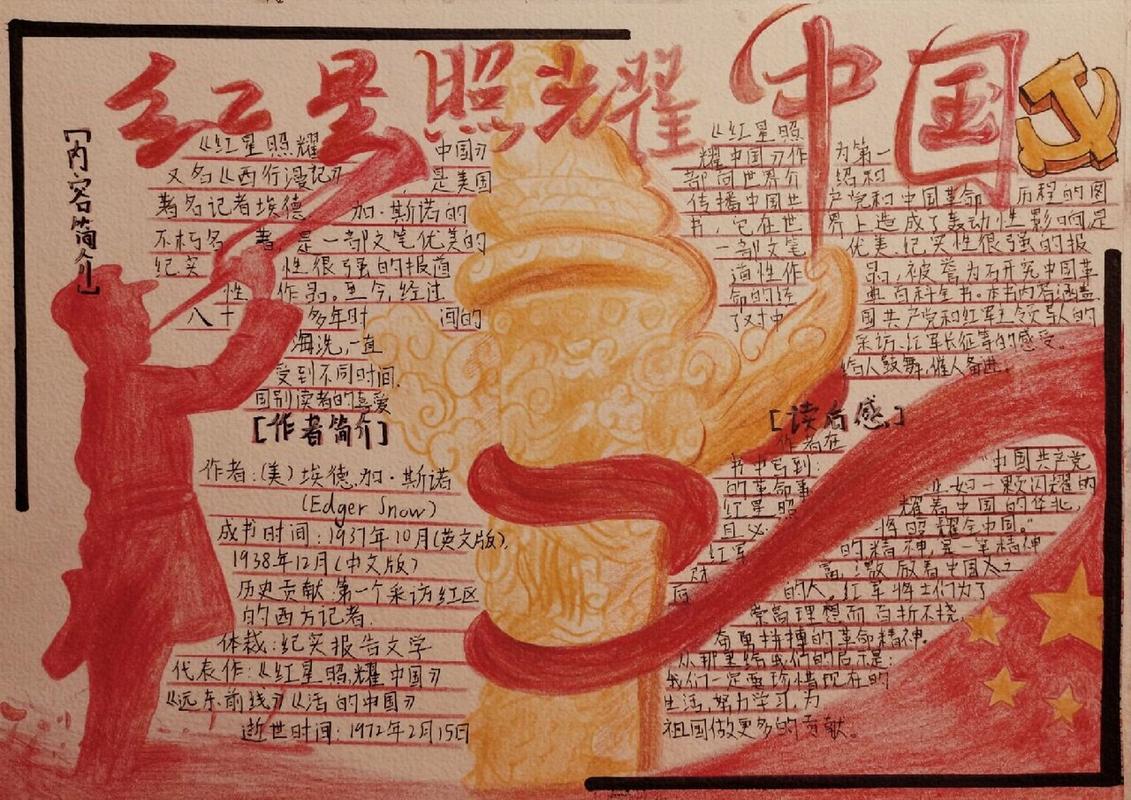 红星照耀中国
[内容简介]
《红星照耀中国》
又名《西行漫记》是美国
著名记者埃德加·斯诺的
不朽名著,是一部文笔优美的
纪实性很强的报道
性作品。至今,经过
八十多年时间的
淘洗,一直
受到不同时间.
国别读者的喜爱
[作者简介]
作者:(美)埃德.加·斯诺
(Edger Snow)
成书时间:1937年10月(英文版),
1938年12月(中文版)
历史贡献:第一个采访红区
的西方记者.
体裁:纪实报告文学
代表作:《红星照耀中国》
《远东前线》《活的中国》
逝世时间:1972年2月15日
《红星照
耀中国》作为第一
部向世界介绍和
传播中国共产党和中国革命历程的图
书,它在世界上造成了轰动性影响,是
一部文笔优美.纪实性很强的报
道性作品,被誉为研究中国革
命的经典百科全书.本书内容涵盖
了对中国共产党和红军主领导人的
采访.红军长征等的感受.
给人鼓舞,催人奋进.
[读后感]
作者在
书中写到:"中国共产党
的革命事业,如一颗闪耀的
红星照耀着中国的华北,
且必将照耀全中国。"
红军的精神,是一笔精神
财富,激励着中国
的人。红军将士们为了
崇高理想而百折不挠,
奋勇拼搏的革命精神.
从那里给我们的启示是:
我们一定要珍惜现在的
生活,努力学习,为
祖国做更多的贡献。